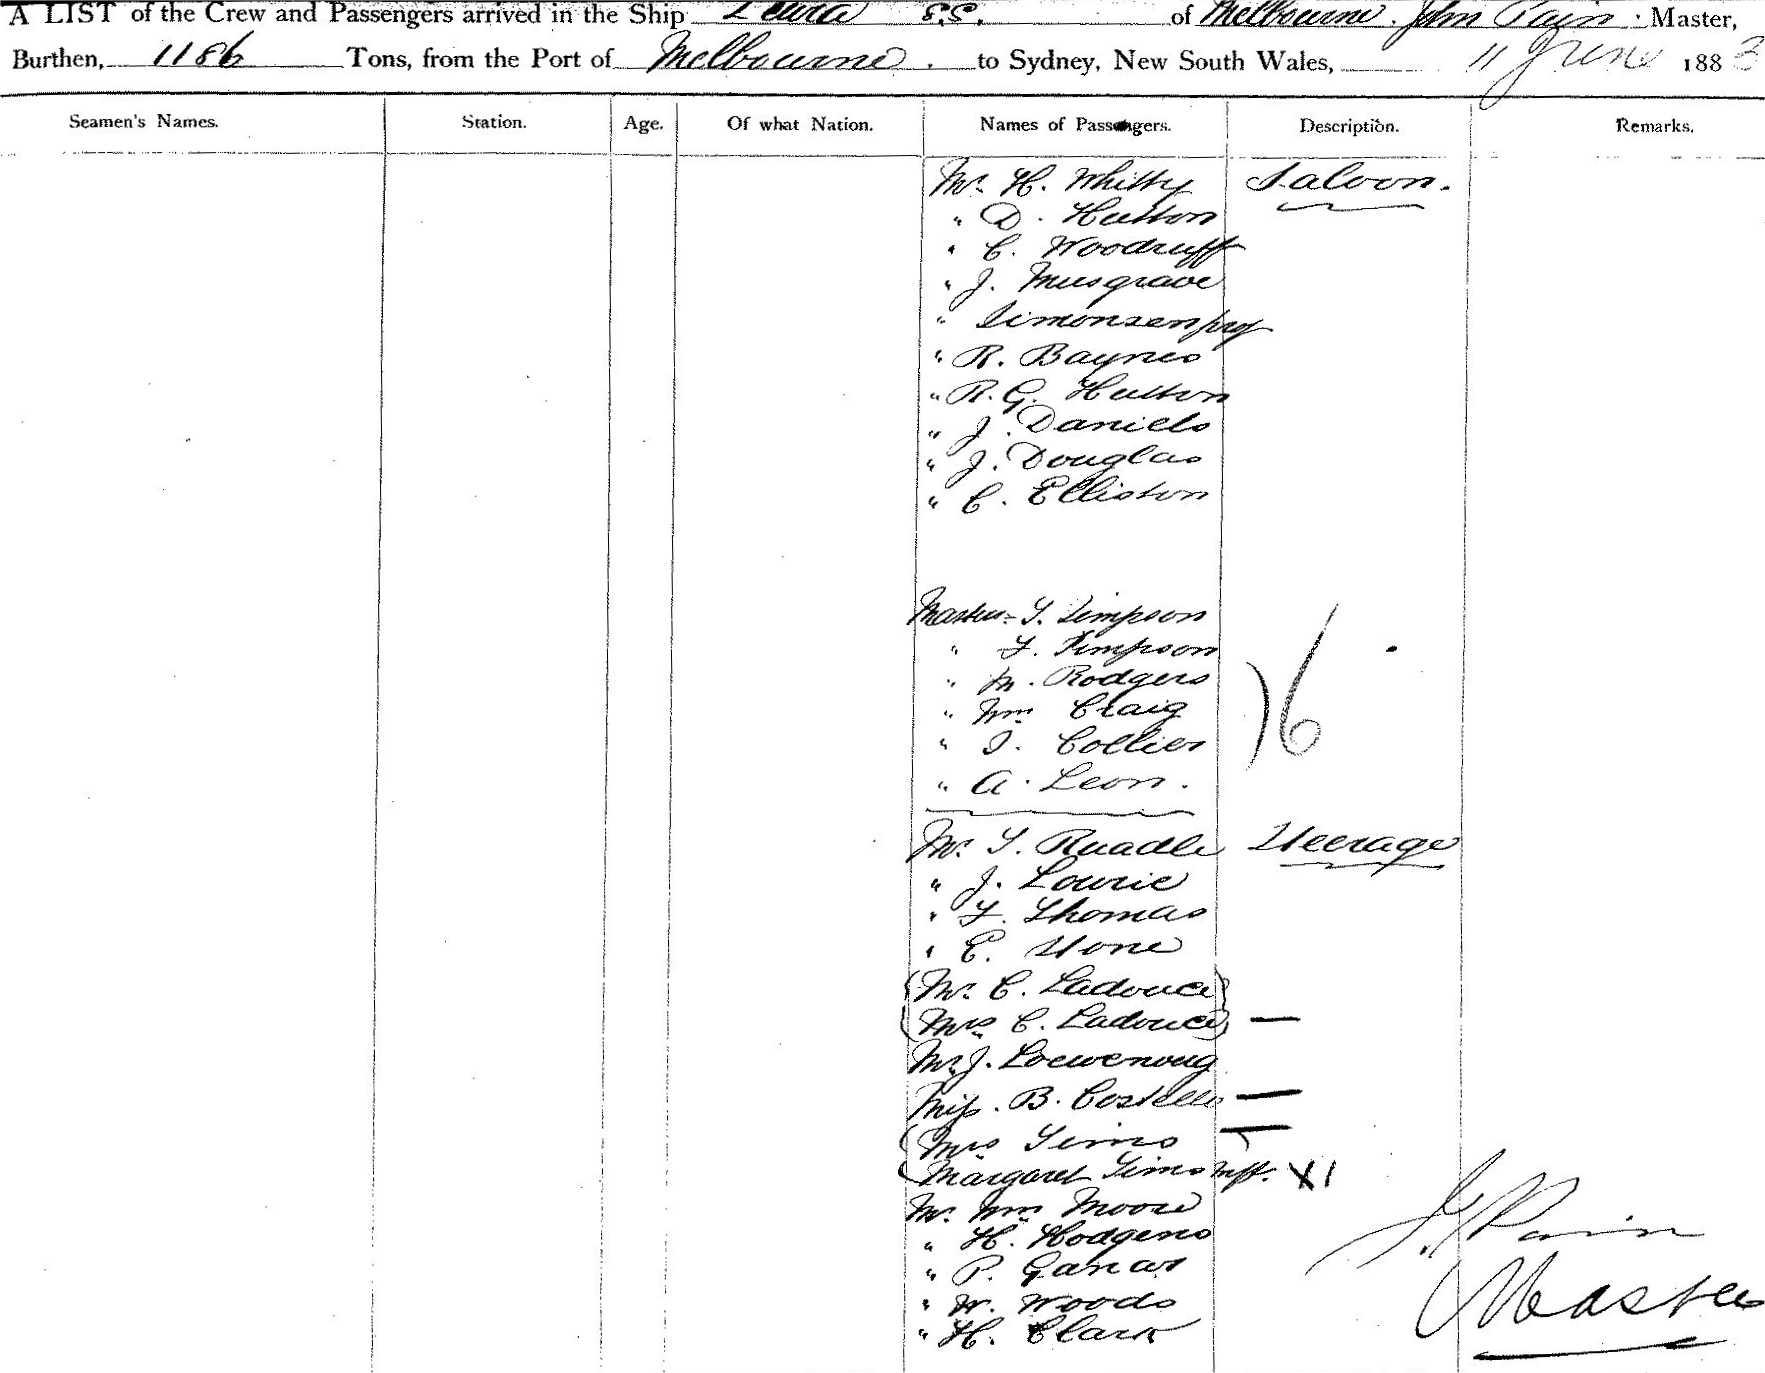 A LIST of the Crew and Passengers arrived in the Ship Leura S.S. of Melbourne. John Pain. Master,
Burthen, 1186 Tons, from the Port of Melbourne. to Sydney, New South Wales, 11 June 1883
Seamen's Names. Station. Age. Of what Nation. Names of Passengers. Description. Remarks.
Mr. H. Whitty Saloon.
" D. Hutton
" C. Woodruff
" J. Musgrave
" Simonsen prof
" R. Baynes
" R. G. Hutton
" J. Daniels
" J. Douglas
" C. Elliston
Master T. Simpson
" F. Simpson
" M. Rodgers
" Wm Craig
" J. Collier
" A. Leon.
) 6
Mr. T. Ruadle Steerage
" J. Lowrie
" F. Thomas
" E. Stone
(Mr. C. Ladouce)
(Mrs C. Ladouce) —
Mr. J.
Miss. B. Costello —
(Mrs Sims —
(Margaret Sims inft. X1
Mr. Wm Moore
" H. Hodgens
" P.
" W. Woods
" H. Clark
J. Pain
Master